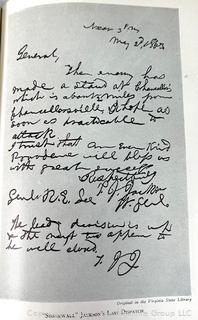 Near 3 Pm
May 2d, 1863
General,
The enemy has
made a stand at Chancellor's
which is about 2 miles from
Chancellorsville. I hope as
soon as practicable to
attack.
I trust that an Ever Kind
Providence will bless us
with great success.
Respectfully
T. J. Jackson
Lt. Genl.
Genl. R. E. Lee
The leading division is up
& the next two appear to
be well closed.
T. J. J.
Original in the Virginia State Library
"STONEWALL" JACKSON'S LAST DISPATCH